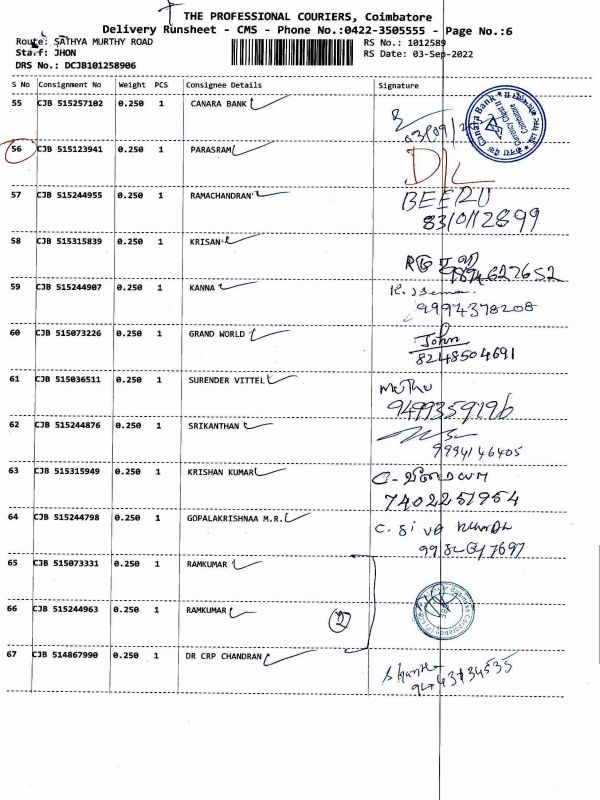 THE PROFESSIONAL COURIERS, Coimbatore
Delivery Runsheet - CMS - Phone No.:0422-3505555 - Page No.:6
Route: SATHYA MURTHY ROAD RS No.: 1012589
Staff: JHON RS Date: 03-Sep-2022
DRS No.: DCJB101258906
S No Consignment No Weight PCS Consignee Details Signature
55 CJB 515257102 0.250 1 CANARA BANK
56 CJB 515123941 0.250 1 PARASRAM D/L
57 CJB 515244955 0.250 1 RAMACHANDRAN BEERU
8310112899
58 CJB 515315839 0.250 1 KRISAN
9894627652
59 CJB 515244907 0.250 1 KANNA
9994378208
60 CJB 515073226 0.250 1 GRAND WORLD John
8248504691
61 CJB 515036511 0.250 1 SURENDER VITTEL Muthu
9499359196
62 CJB 515244876 0.250 1 SRIKANTHAN
9994146405
63 CJB 515315949 0.250 1 KRISHAN KUMAR
7402251954
64 CJB 515244798 0.250 1 GOPALAKRISHNAA M.R.
65 CJB 515073331 0.250 1 RAMKUMAR
66 CJB 515244963 0.250 1 RAMKUMAR
67 CJB 514867990 0.250 1 DR CRP CHANDRAN